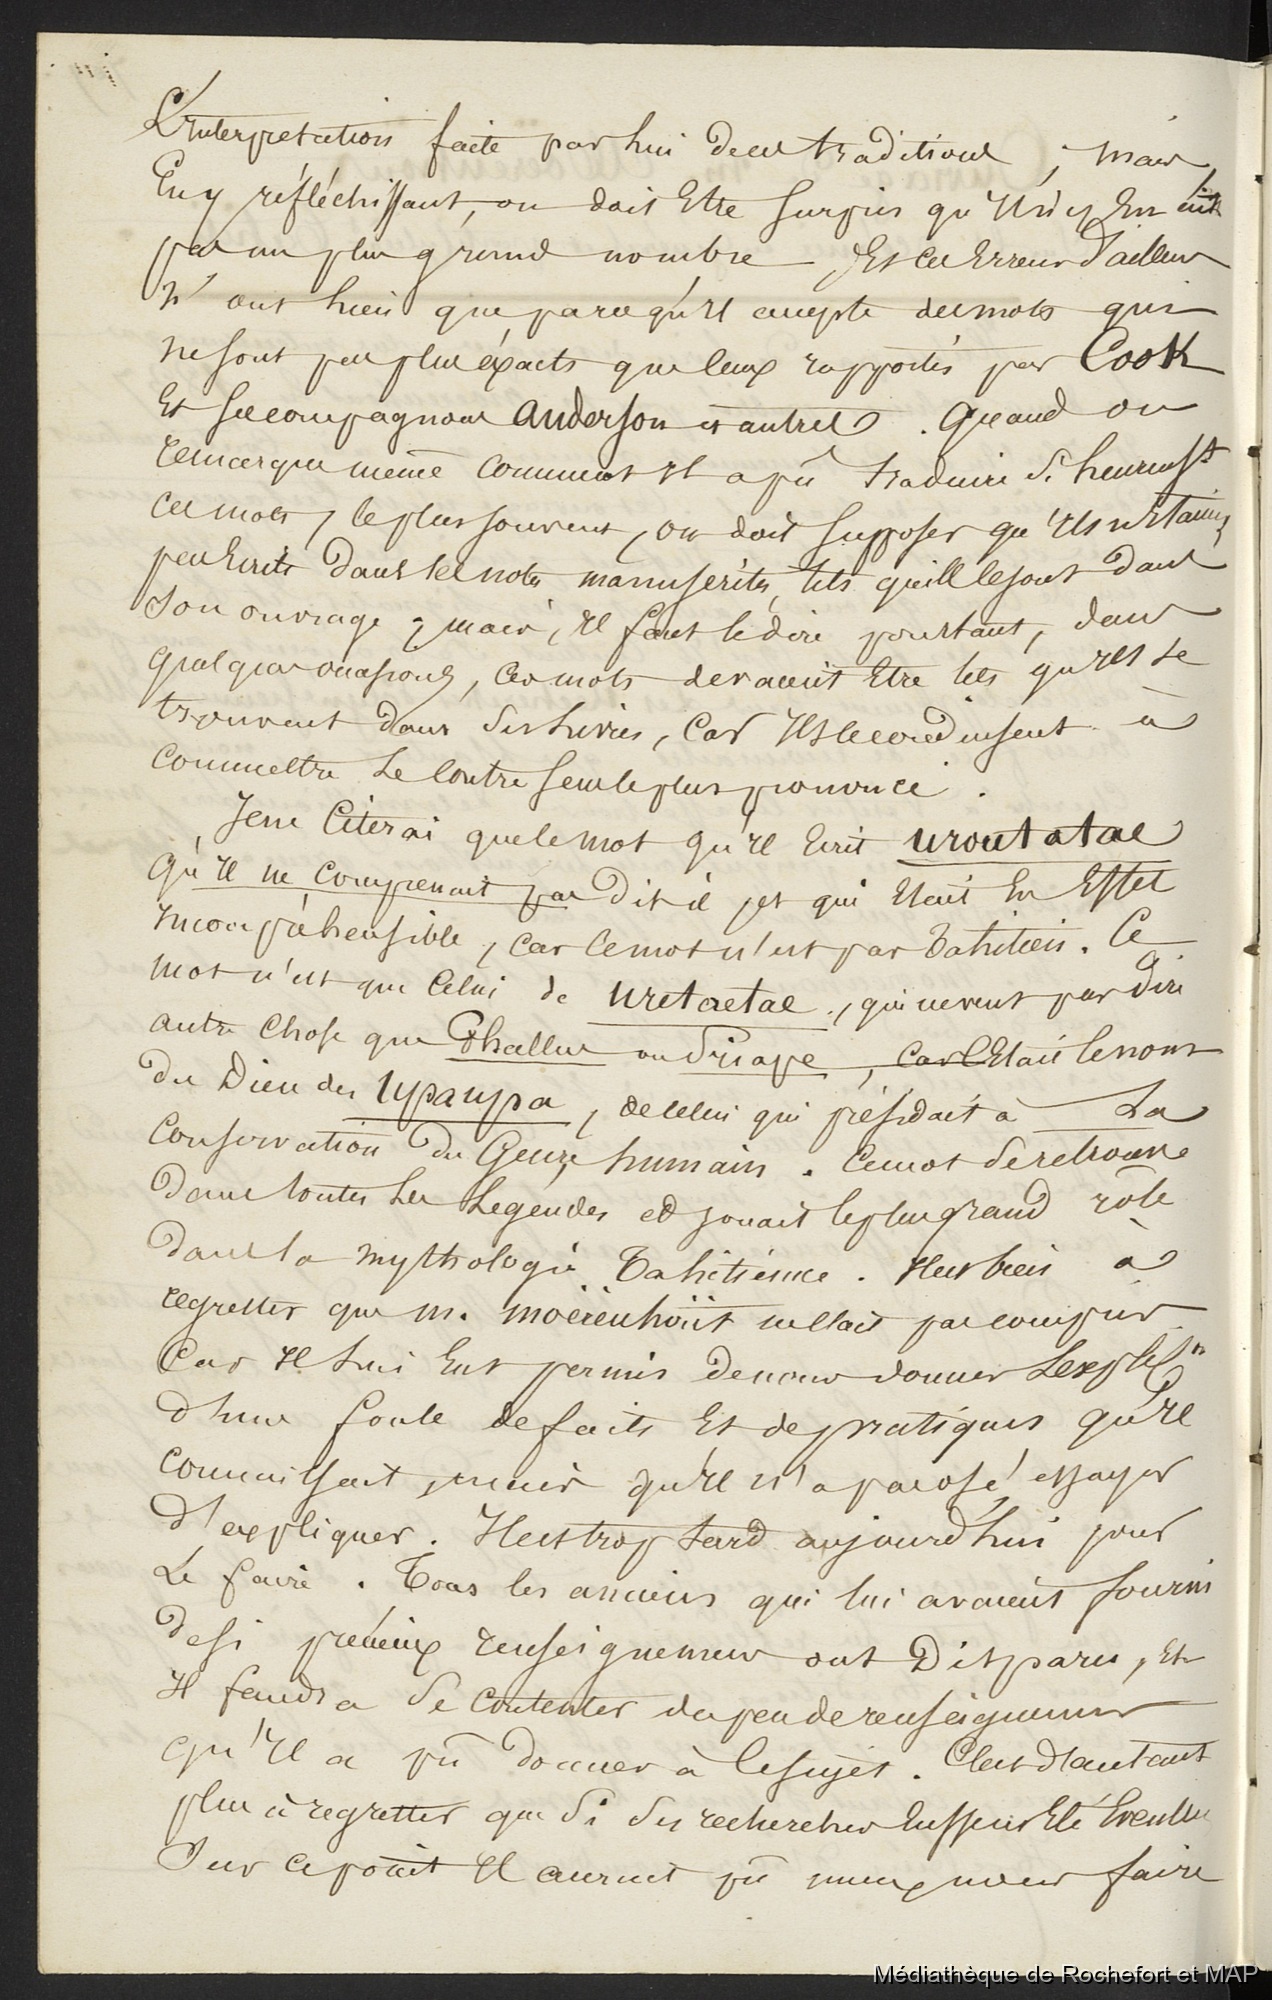 L'interpretation faite par lui de ces traditions, mais
En y réfléchissant, on doit Etre surpris qu'Il n'y En ait
pas un plus grand nombre. Et ces Erreurs d'ailleurs
n'ont lieu que parce qu'Il accepte des mots qui
ne sont pas plus éxacts que ceux rapportés par Cook
Et ses compagnons Anderson et autres. Quand on
remarque même comment Il a pû traduire si heureust
ces mots, le plus souvent, on doit supposer qu'Ils n'Etaient
pas Ecrits dans les notes manuscrites, tels qu'ill le sont dans
son ouvrage ; mais, Il faut le dire pourtant, dans
quelques occasions, ces mots devaient Etre tels qu'Ils se
trouvent dans ses livres, car Ils le conduisent à
commettre Le Contre sens le plus prononcé.
Je ne Citerai que le mot qu'Il Ecrit uroutatae
qu'Il ne comprenait pas dit-il, et qui Etait En Effet
Incompréhensible, car ce mot n'est pas Tahitien. Ce
mot n'est que Celui de uretaetae, qui ne veut pas dire
autre Chose que Phallus ou Priape, car C'Etait le nom
du Dieu des Upaupa, de celui qui présidait à La
Conservation du Genre humain. Ce mot se retrouve
dans toutes Les Légendes et jouait le plus grand rôle
dans la mythologie Tahitienne. Il est bien à
regretter que M. Moërenhoüt ne l'ait pas compris
Car Il lui Eut permis de nous donner L'expln
d'une foule de faits Et de pratiques qu'Il
connaissait, mais qu'Il n'a pas osé essayer
d'expliquer. Il est trop tard aujourd'hui pour
Le faire. Tous les anciens qui lui avaient fourni
de si précieux renseignemens ont Disparu, Et
Il faudra se contenter du peu de renseignemens
qu'Il a pû donner à ce sujet. C'est d'autant
plus à regretter que si des recherches Eussent Eté
sur ce point Il aurait pû mieux nous faire
Médiathèque de Rochefort et MAP